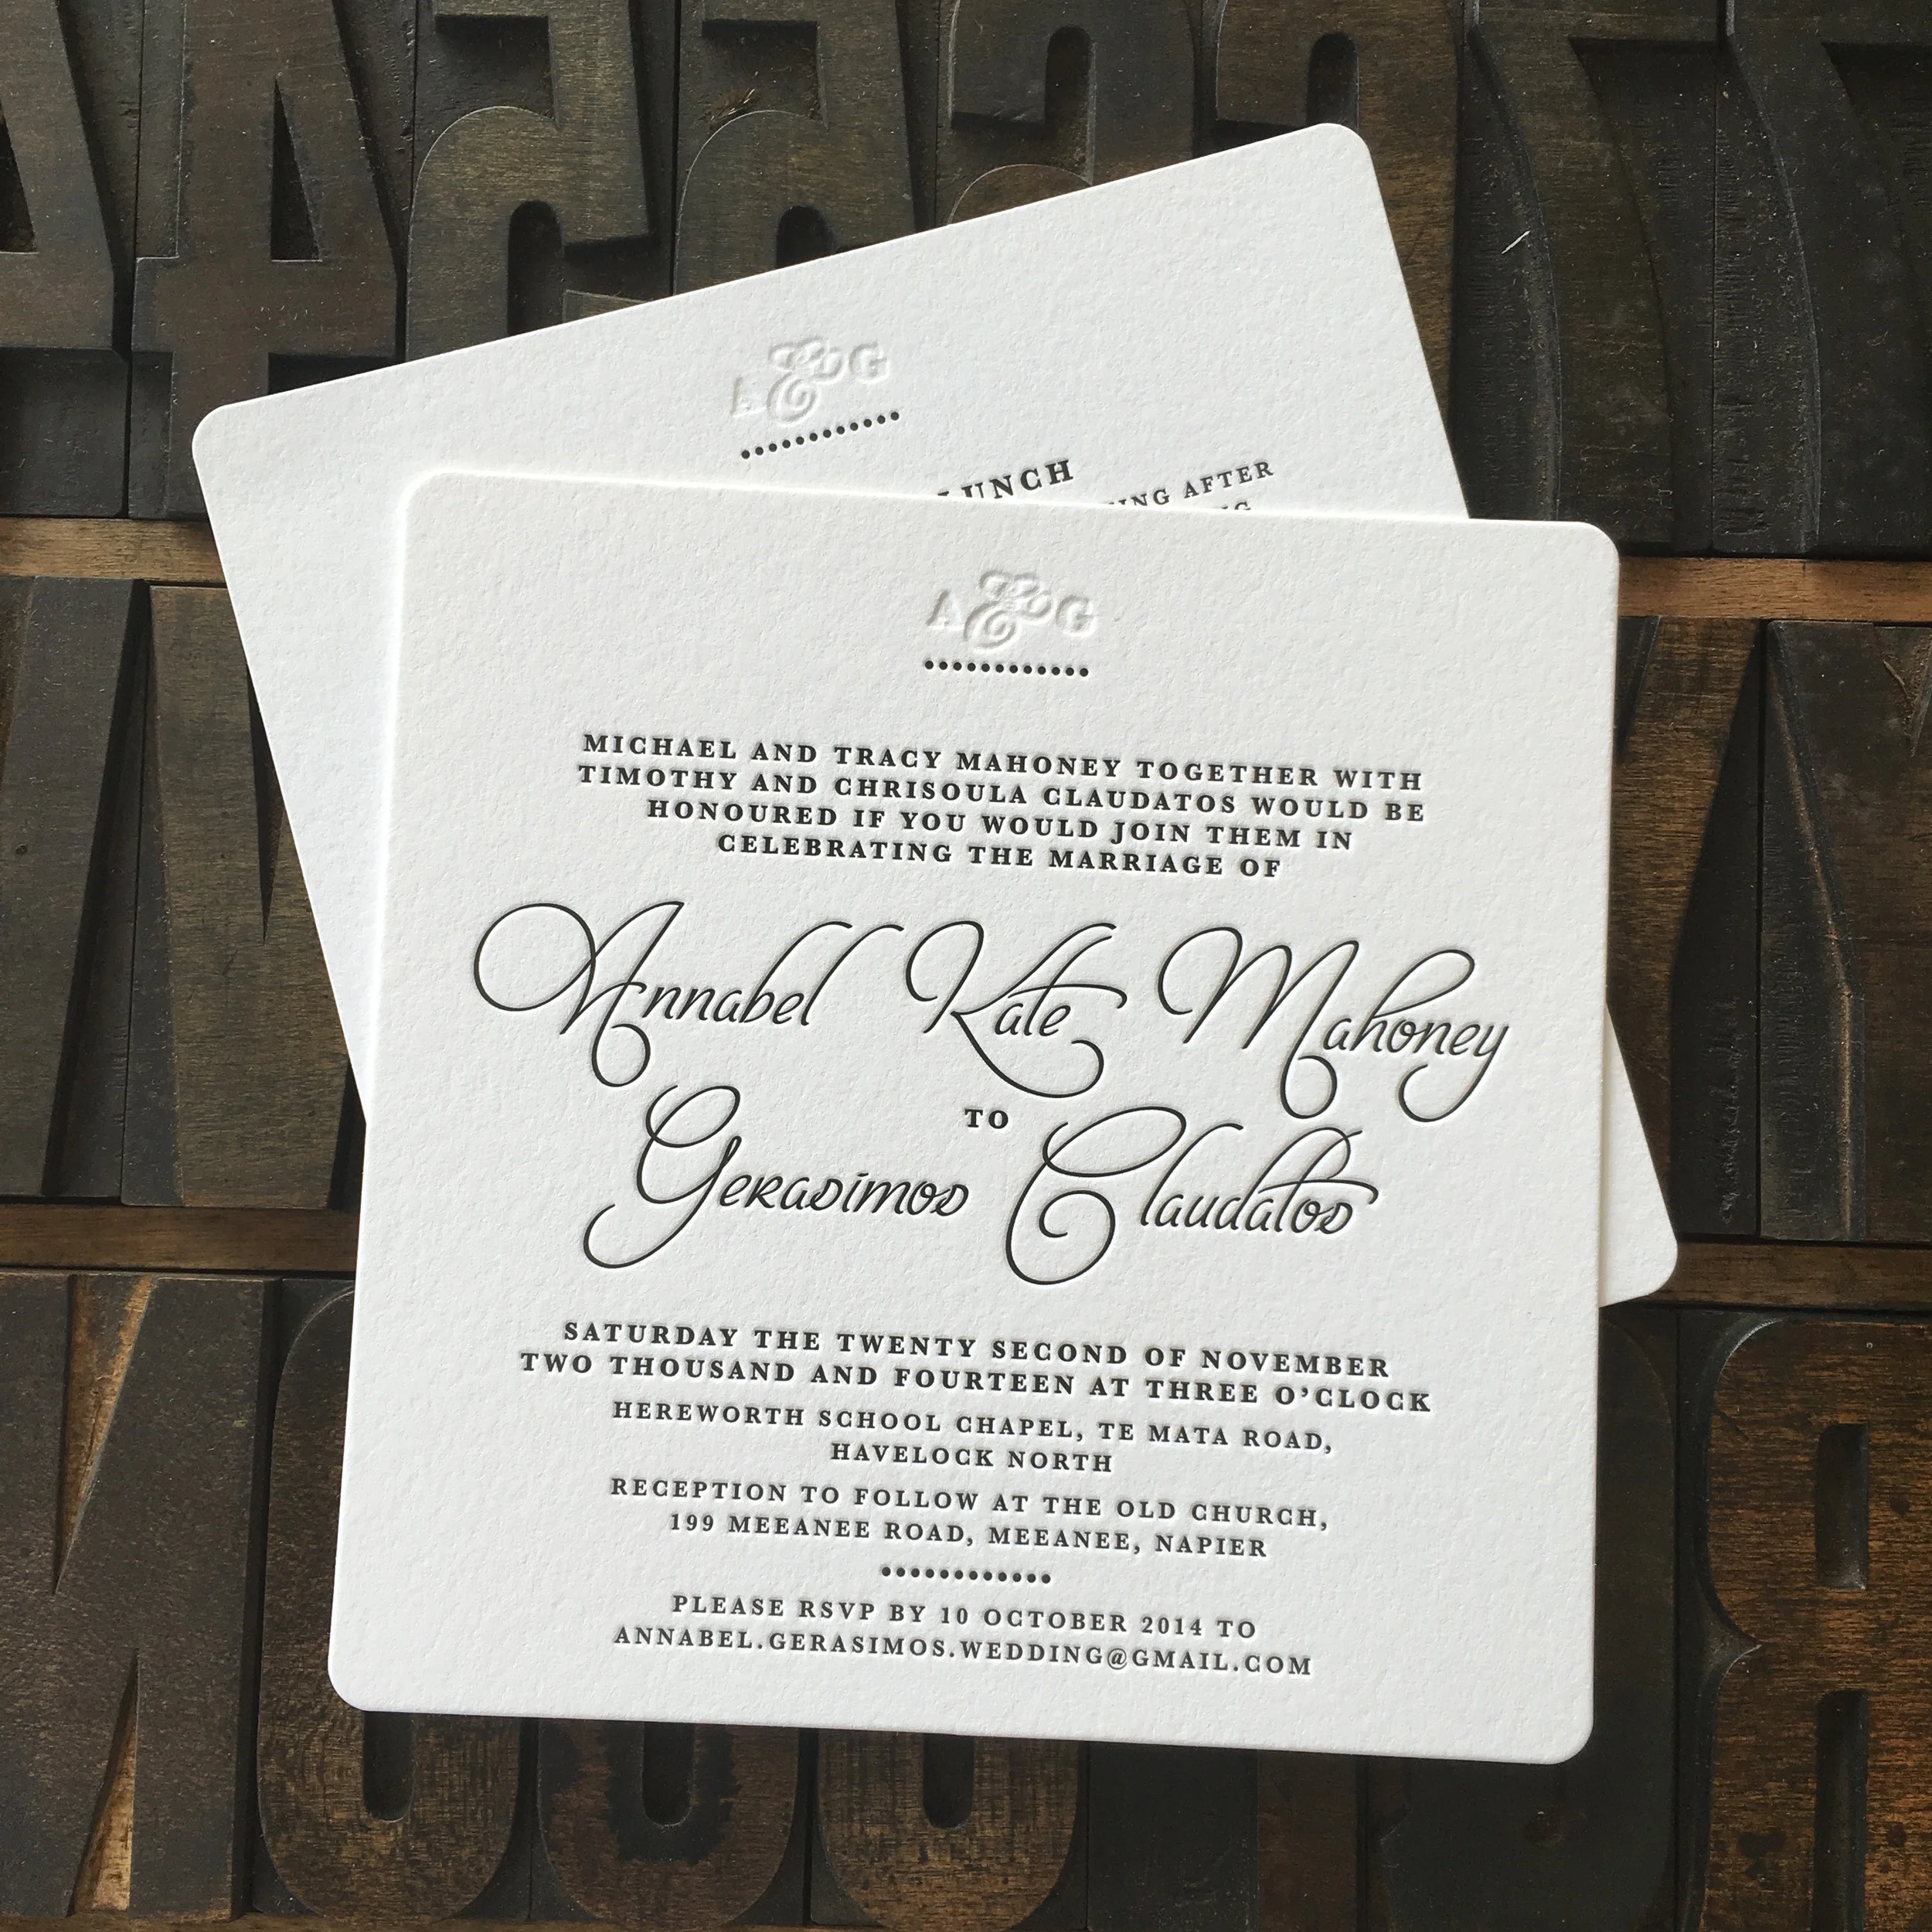 A & G
LUNCH
AFTER
A & G
MICHAEL AND TRACY MAHONEY TOGETHER WITH
TIMOTHY AND CHRISOULA CLAUDATOS WOULD BE
HONOURED IF YOU WOULD JOIN THEM IN
CELEBRATING THE MARRIAGE OF
Annabel Kate Mahoney
TO
Gerasimos Claudatos
SATURDAY THE TWENTY SECOND OF NOVEMBER
TWO THOUSAND AND FOURTEEN AT THREE O'CLOCK
HEREWORTH SCHOOL CHAPEL, TE MATA ROAD,
HAVELOCK NORTH
RECEPTION TO FOLLOW AT THE OLD CHURCH,
199 MEEANEE ROAD, MEEANEE, NAPIER
PLEASE RSVP BY 10 OCTOBER 2014 TO
ANNABEL.GERASIMOS.WEDDING@GMAIL.COM